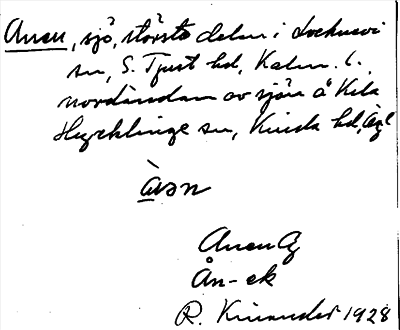 Ånen, sjö, största delen i Locknevi
sn, S. Tjust hd, Kalm. l.
nordändan av sjön å Kila
Hycklinge sn, Kinda hd, Ögl
Ånen
Ån-ek
R. Kinander 1928